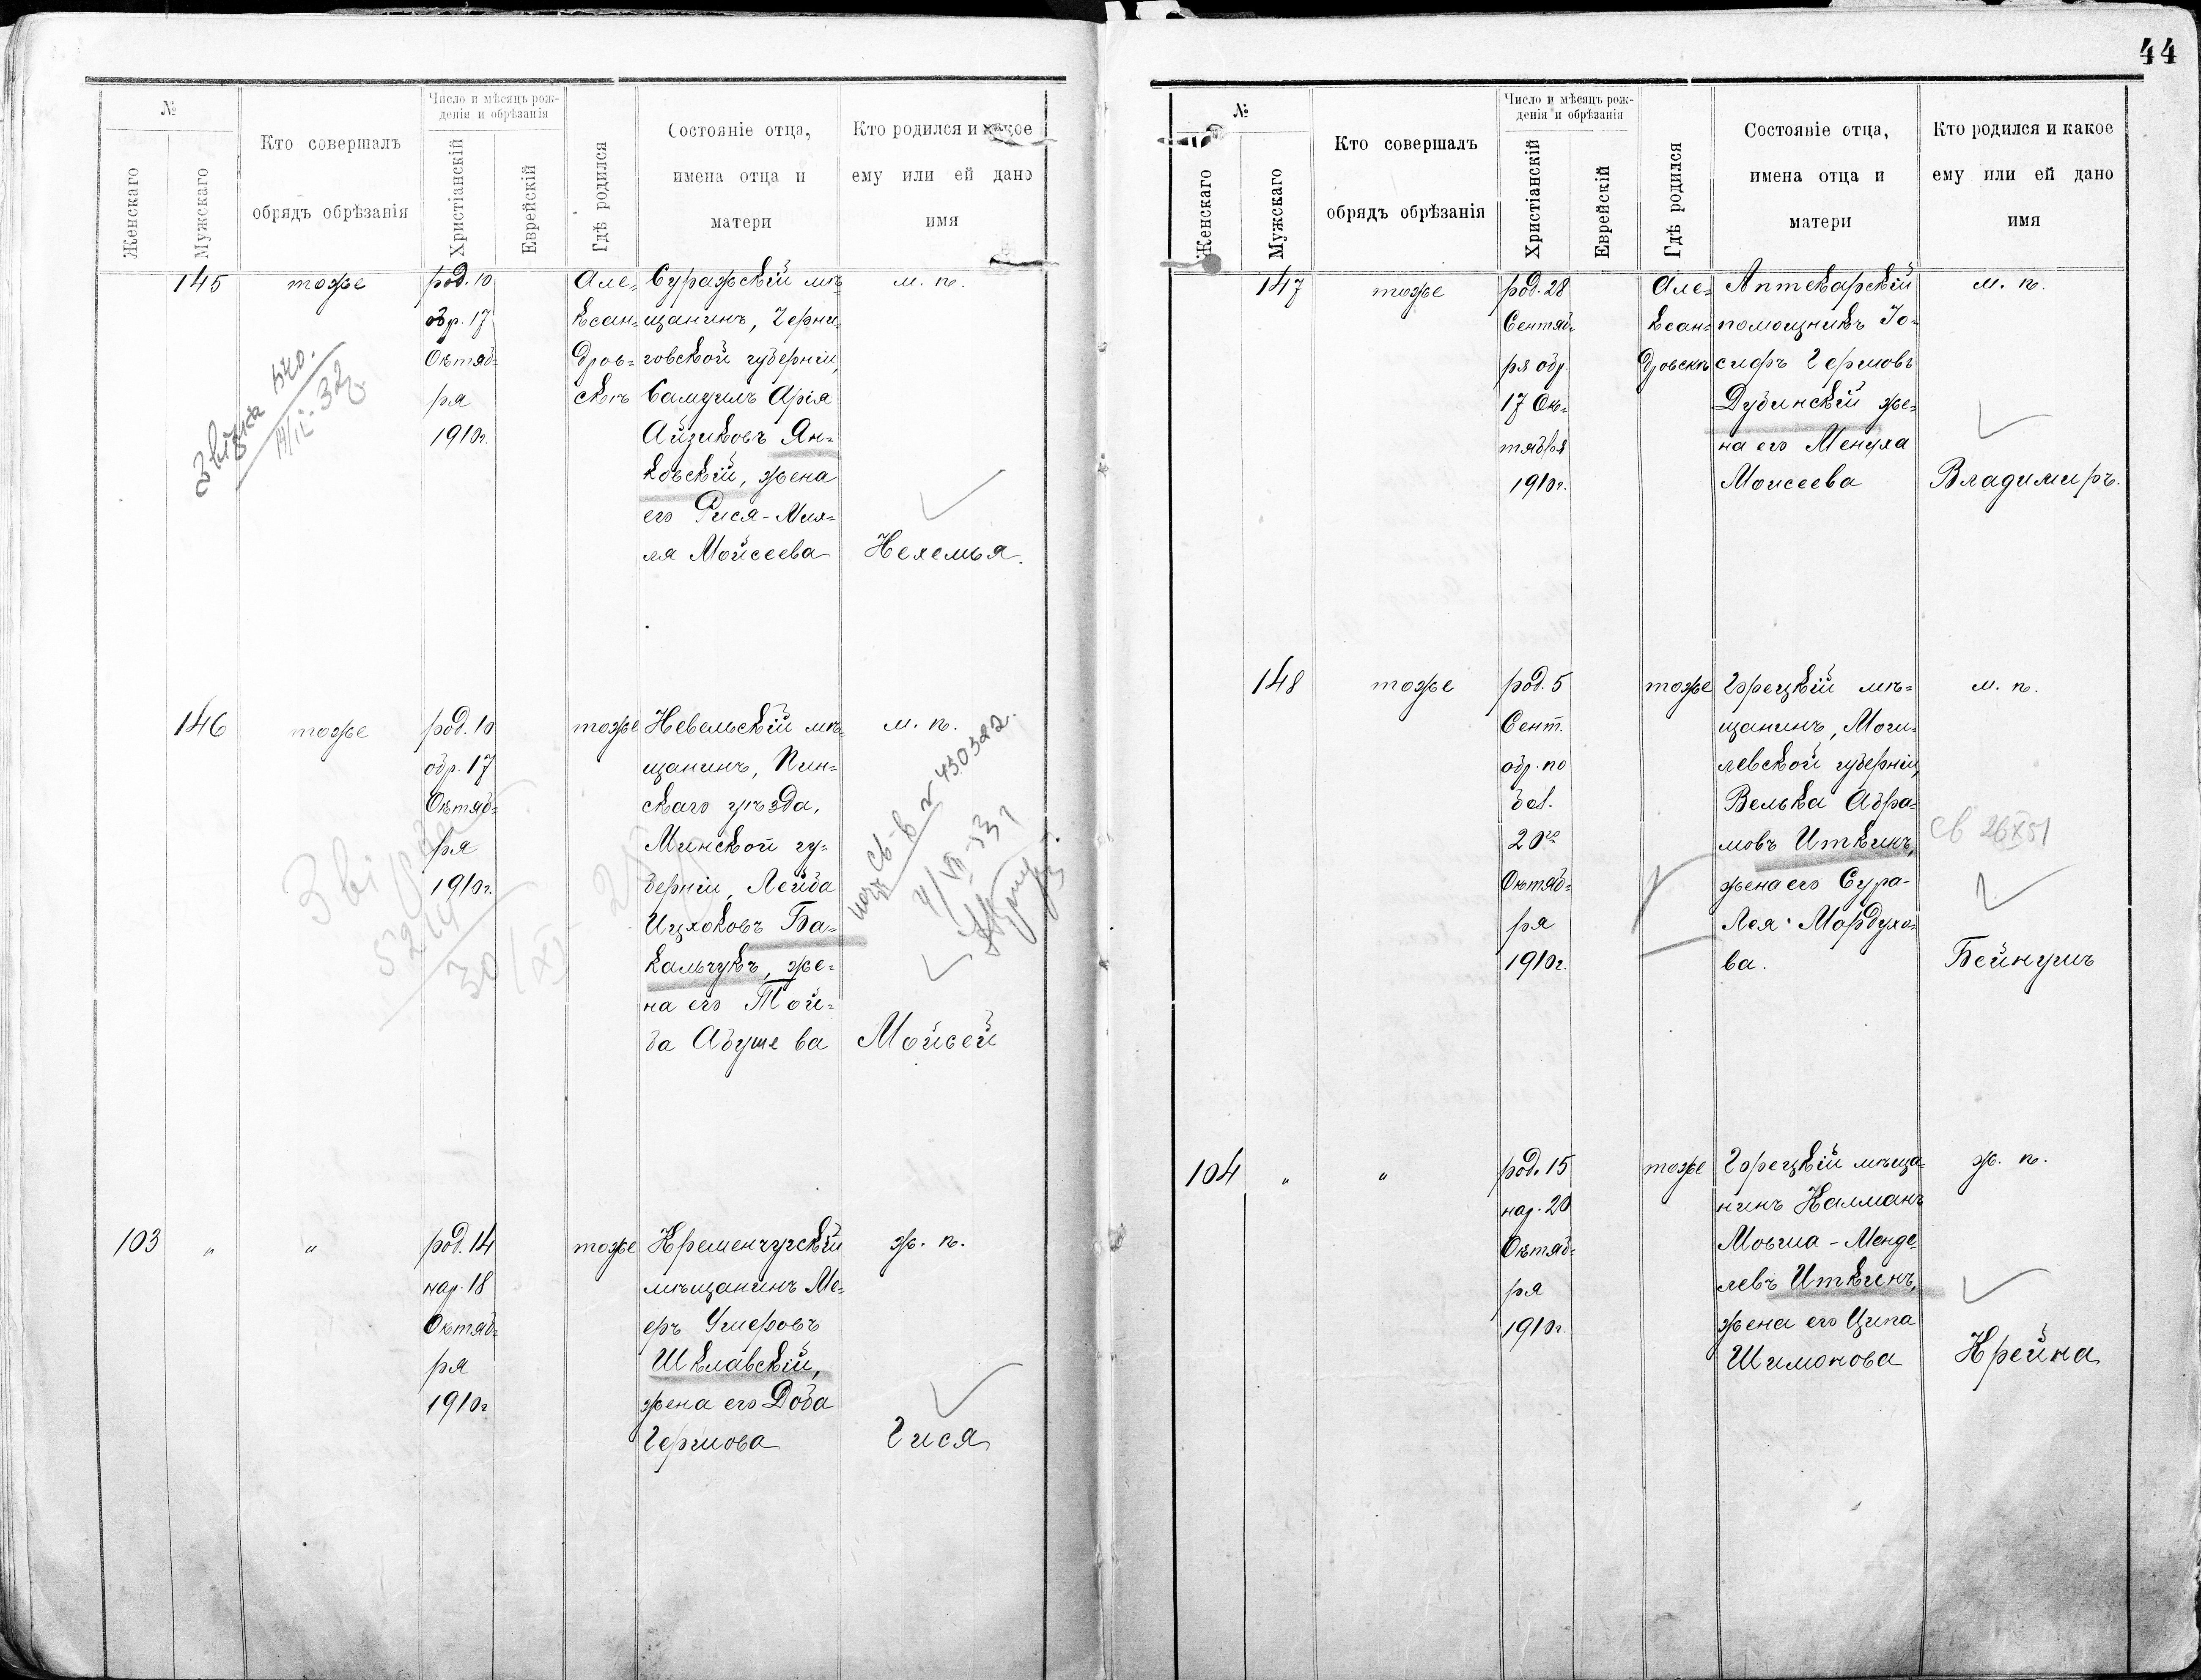 44
№
Женскаго
Мужскаго
Кто совершалъ
обрядъ обрѣзанія
Число и мѣсяцъ рож-
денія и обрѣзанія
Христіанскій
Еврейскій
Гдѣ родился
Состояніе отца,
имена отца и
матери
Кто родился и какое
ему или ей дано
имя
145
тоже
род. 10
обр. 17
Октяб=
ря
1910г.
Але=
ксан=
дров=
скъ
Суражскій мѣ=
щанинъ, Черни=
говской губерніи,
Самуилъ Арія
Айзиковъ Ян=
ковскій, жена
его Рися-Мих=
ля Мойсеева
м. п.
Нехемья.
146
тоже
род. 10
обр. 17
Октяб=
ря
1910г.
тоже
Невельскій мѣ=
щанинъ, Пин=
скаго уѣзда,
Минской гу=
берніи, Лейба
Ицхоковъ Ба=
кальчукъ, же=
на его Той=
ба Абушева
м. п.
430322
Мойсей
30/XI
103
"
"
род. 14
нар. 18
Октяб=
ря
1910г
тоже
Кременчугскій
мѣщанинъ Ме=
еръ
Шклавскій,
жена его Доба
Гершова
ж. п.
Гися
№
Женскаго
Мужскаго
Кто совершалъ
обрядъ обрѣзанія
Число и мѣсяцъ рож-
денія и обрѣзанія
Христіанскій
Еврейскій
Гдѣ родился
Состояніе отца,
имена отца и
матери
Кто родился и какое
ему или ей дано
имя
147
тоже
род. 28
Сентяб=
ря обр.
17 Ок=
тября
1910г.
Але=
ксан=
дровскъ
Аптекарскій
помощникъ Іо=
сифъ Гершовъ
Дубинскій же=
на его Менуха
Моисеева
м. п.
Владимиръ.
148
тоже
род. 5
Сент.
обр. по
бол.
20го
Октяб=
ря
1910г.
тоже
Горецкій мѣ=
щанинъ, Моги=
левской губерніи,
Велька Абра=
мовъ Иткинъ,
жена его Сура-
Лея Мордухо=
ва.
м. п.
св 26 X 51
Бейнушъ
104
"
"
род. 15
нар. 20
Октяб=
ря
1910г.
тоже
Горецкій мѣща=
нинъ Калманъ
Мовша-Менде=
левъ Иткинъ,
жена его Ципа
Шимонова
ж. п.
Крейна